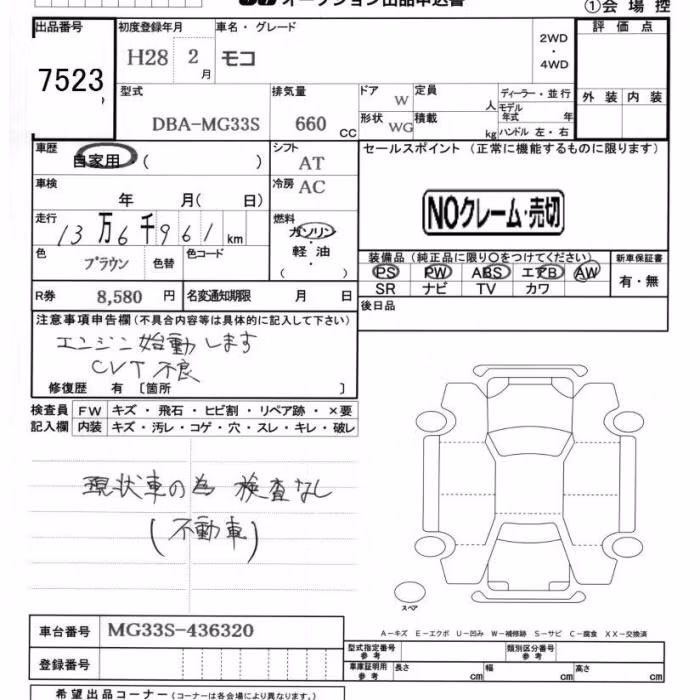 オークション出品申込書
①会場控
出品番号 初度登録年月 車名・グレード 評価点
7523 H28 2月 モコ 2WD・4WD
外装 内装
型式 排気量 ドア W 定員 人 ディーラー・並行
モデル年式 年
DBA-MG33S 660 CC 形状 WG 積載 kg ハンドル 左・右
車歴 自家用 ( ) シフト AT セールスポイント (正常に機能するものに限ります)
車検 年 月( 日) 冷房 AC
NOクレーム・売切
走行 13万6千961km 燃料 ガソリン・軽油・( )
色 ブラウン 色替 色コード
装備品 (純正品に限り○をつけてください) 新車保証書
PS PW ABS エアB AW 有・無
SR ナビ TV カワ
R券 8,580 円 名変通知期限 月 日 後日品
注意事項申告欄 (不具合内容等は具体的に記入して下さい)
エンジン始動します
CVT不良
修復歴 有 〔箇所 〕
検査員 FW キズ・飛石・ヒビ割・リペア跡・×要
記入欄 内装 キズ・汚レ・コゲ・穴・スレ・キレ・破レ
現状車の為 検査なし
(不動車)
スペア
A-キズ E-エクボ U-凹み W-補修跡 S-サビ C-腐食 XX-交換済
車台番号 MG33S-436320
型式指定番号 参考 類別区分番号 参考
登録番号 車庫証明用 参考 長さ cm 幅 cm 高さ cm
希望出品コーナー (コーナーは各会場により異なります。)